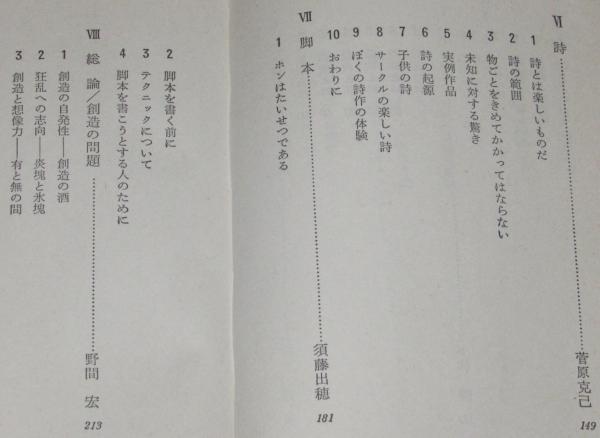 Ⅵ 詩 菅原克己 149
1 詩とは楽しいものだ
2 詩の範囲
3 物ごとをきめてかかってはならない
4 未知に対する驚き
5 実例作品
6 詩の起源
7 子供の詩
8 サークルの楽しい詩
9 ぼくの詩作の体験
10 おわりに
Ⅶ 脚本 須藤出穂 181
1 ホンはたいせつである
2 脚本を書く前に
3 テクニックについて
4 脚本を書こうとする人のために
Ⅷ 総論/創造の問題 野間宏 213
1 創造の自発性——創造の酒
2 狂乱への志向——炎塊と氷塊
3 創造と想像力——有と無の間